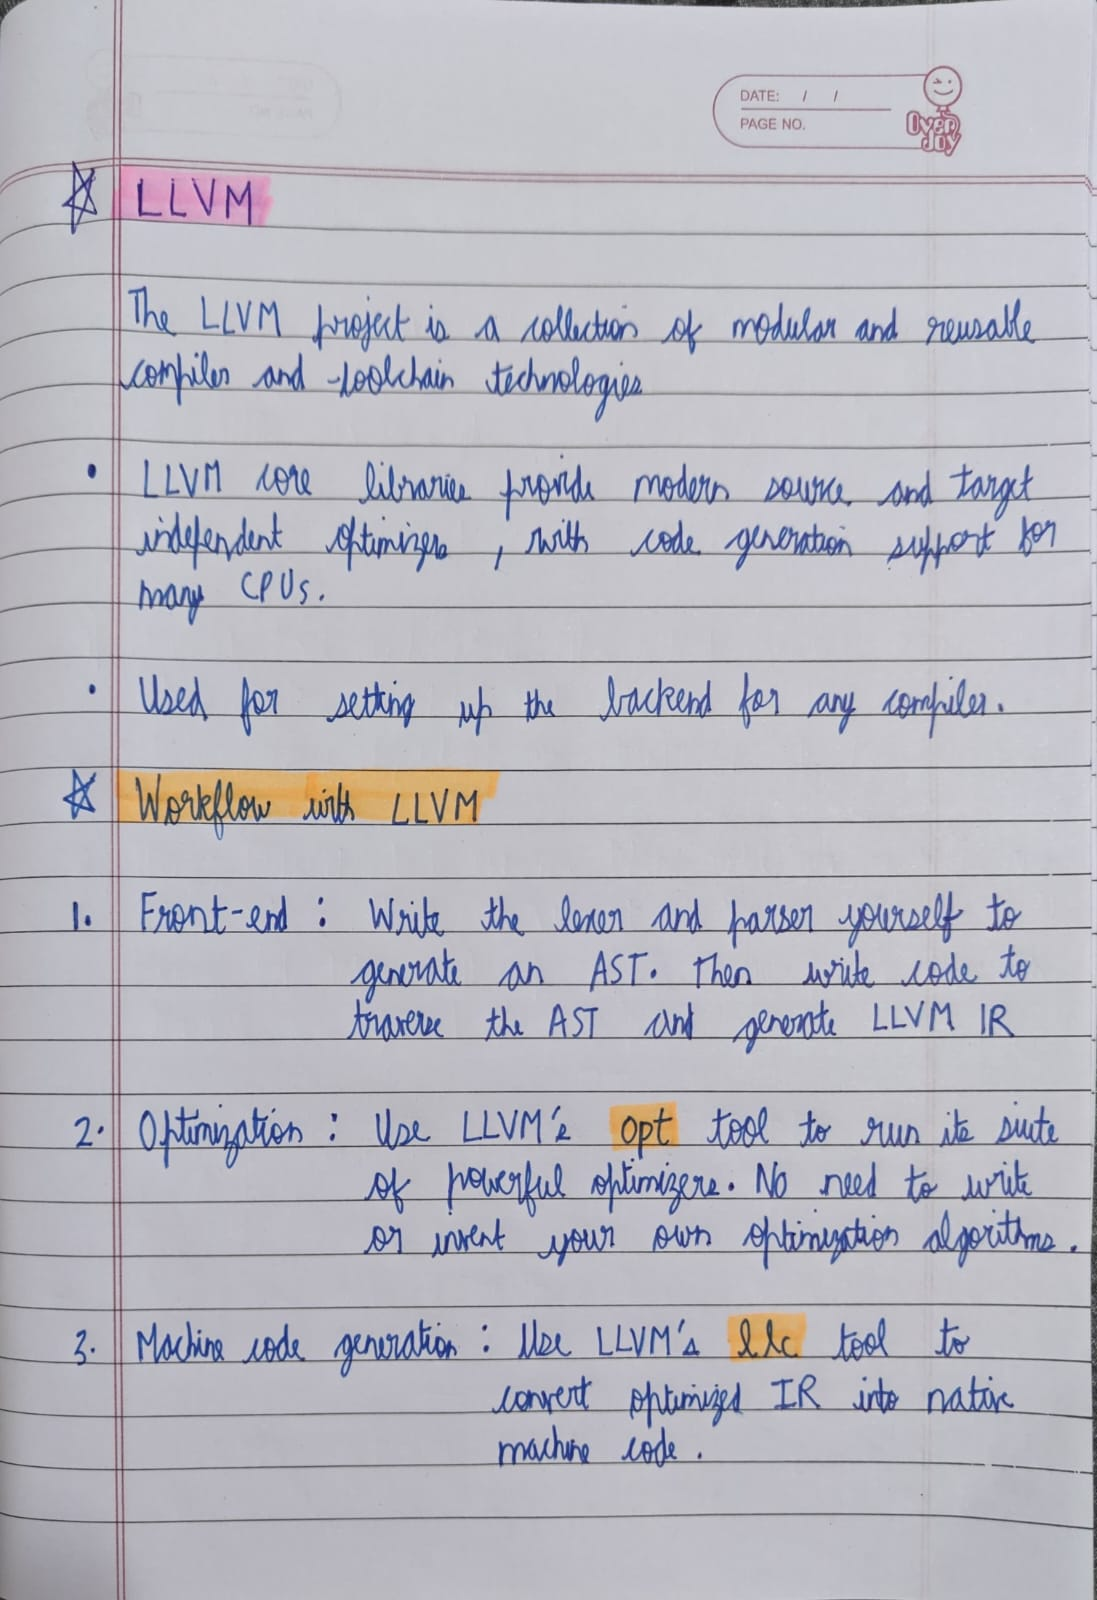 DATE: / /
PAGE NO.
Over Joy
LLVM
The LLVM project is a collection of modular and reusable
compiler and toolchain technologies
• LLVM core libraries provide modern source and target
independent optimizers, with code generation support for
many CPUs.
• Used for setting up the backend for any compiler.
Workflow with LLVM
1. Front-end : Write the lexer and parser yourself to
generate an AST. Then write code to
traverse the AST and generate LLVM IR
2. Optimization : Use LLVM's opt tool to run its suite
of powerful optimizers. No need to write
or invent your own optimization algorithms.
3. Machine code generation : Use LLVM's llc tool to
convert optimized IR into native
machine code.